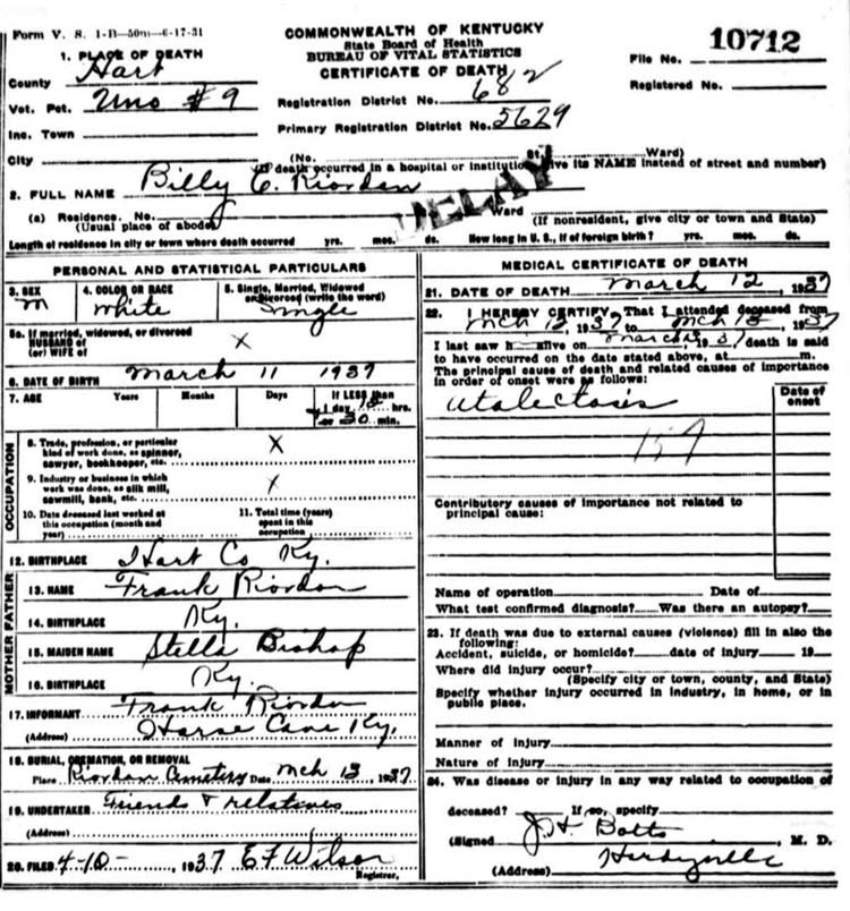 Form V. S. 1-B—50m—6-17-31
COMMONWEALTH OF KENTUCKY
State Board of Health
BUREAU OF VITAL STATISTICS
CERTIFICATE OF DEATH
File No. 10712
Registered No.
1. PLACE OF DEATH
County Hart
Vot. Pct. Uno #9
Inc. Town
City
Registration District No. 682
Primary Registration District No. 5629
(No. St. Ward)
(If death occurred in a hospital or institution give its NAME instead of street and number)
2. FULL NAME Billy C. Riordan
DELAY
(a) Residence. No. Ward
(Usual place of abode) (If nonresident, give city or town and State)
Length of residence in city or town where death occurred yrs. mos. ds. How long in U. S., if of foreign birth? yrs. mos. ds.
PERSONAL AND STATISTICAL PARTICULARS
3. SEX m
4. COLOR OR RACE white
5. Single, Married, Widowed or Divorced (write the word) single
5a. If married, widowed, or divorced
HUSBAND of
(or) WIFE of X
6. DATE OF BIRTH March 11 1937
7. AGE Years Months Days If LESS than
1 day 18 hrs.
or 30 min.
OCCUPATION
8. Trade, profession, or particular
kind of work done, as spinner,
sawyer, bookkeeper, etc. X
9. Industry or business in which
work was done, as silk mill,
sawmill, bank, etc. X
10. Date deceased last worked at
this occupation (month and
year)
11. Total time (years)
spent in this
occupation
12. BIRTHPLACE Hart Co Ky.
FATHER
13. NAME Frank Riordan
14. BIRTHPLACE Ky.
MOTHER
15. MAIDEN NAME Stella Bishop
16. BIRTHPLACE Ky.
17. INFORMANT Frank Riordan
(Address) Horse Cave Ky.
18. BURIAL, CREMATION, OR REMOVAL
Place Riordan Cemetery Date Mch 13, 1937
19. UNDERTAKER Friends & relatives
(Address)
20. FILED 4-10-, 1937 E F Wilson
Registrar.
MEDICAL CERTIFICATE OF DEATH
21. DATE OF DEATH March 12, 1937
22. I HEREBY CERTIFY, That I attended deceased from
Mch 12, 1937 to Mch 12, 1937
I last saw h alive on March, 1937 death is said
to have occurred on the date stated above, at m.
The principal cause of death and related causes of importance
in order of onset were as follows:
Date of onset
Atalectasis
159
Contributory causes of importance not related to
principal cause:
Name of operation Date of
What test confirmed diagnosis? Was there an autopsy?
23. If death was due to external causes (violence) fill in also the
following:
Accident, suicide, or homicide? date of injury 19
Where did injury occur?
(Specify city or town, county, and State)
Specify whether injury occurred in industry, in home, or in
public place.
Manner of injury
Nature of injury
24. Was disease or injury in any way related to occupation of
deceased? If so, specify
(Signed J H Botts, M. D.
(Address) Hardyville